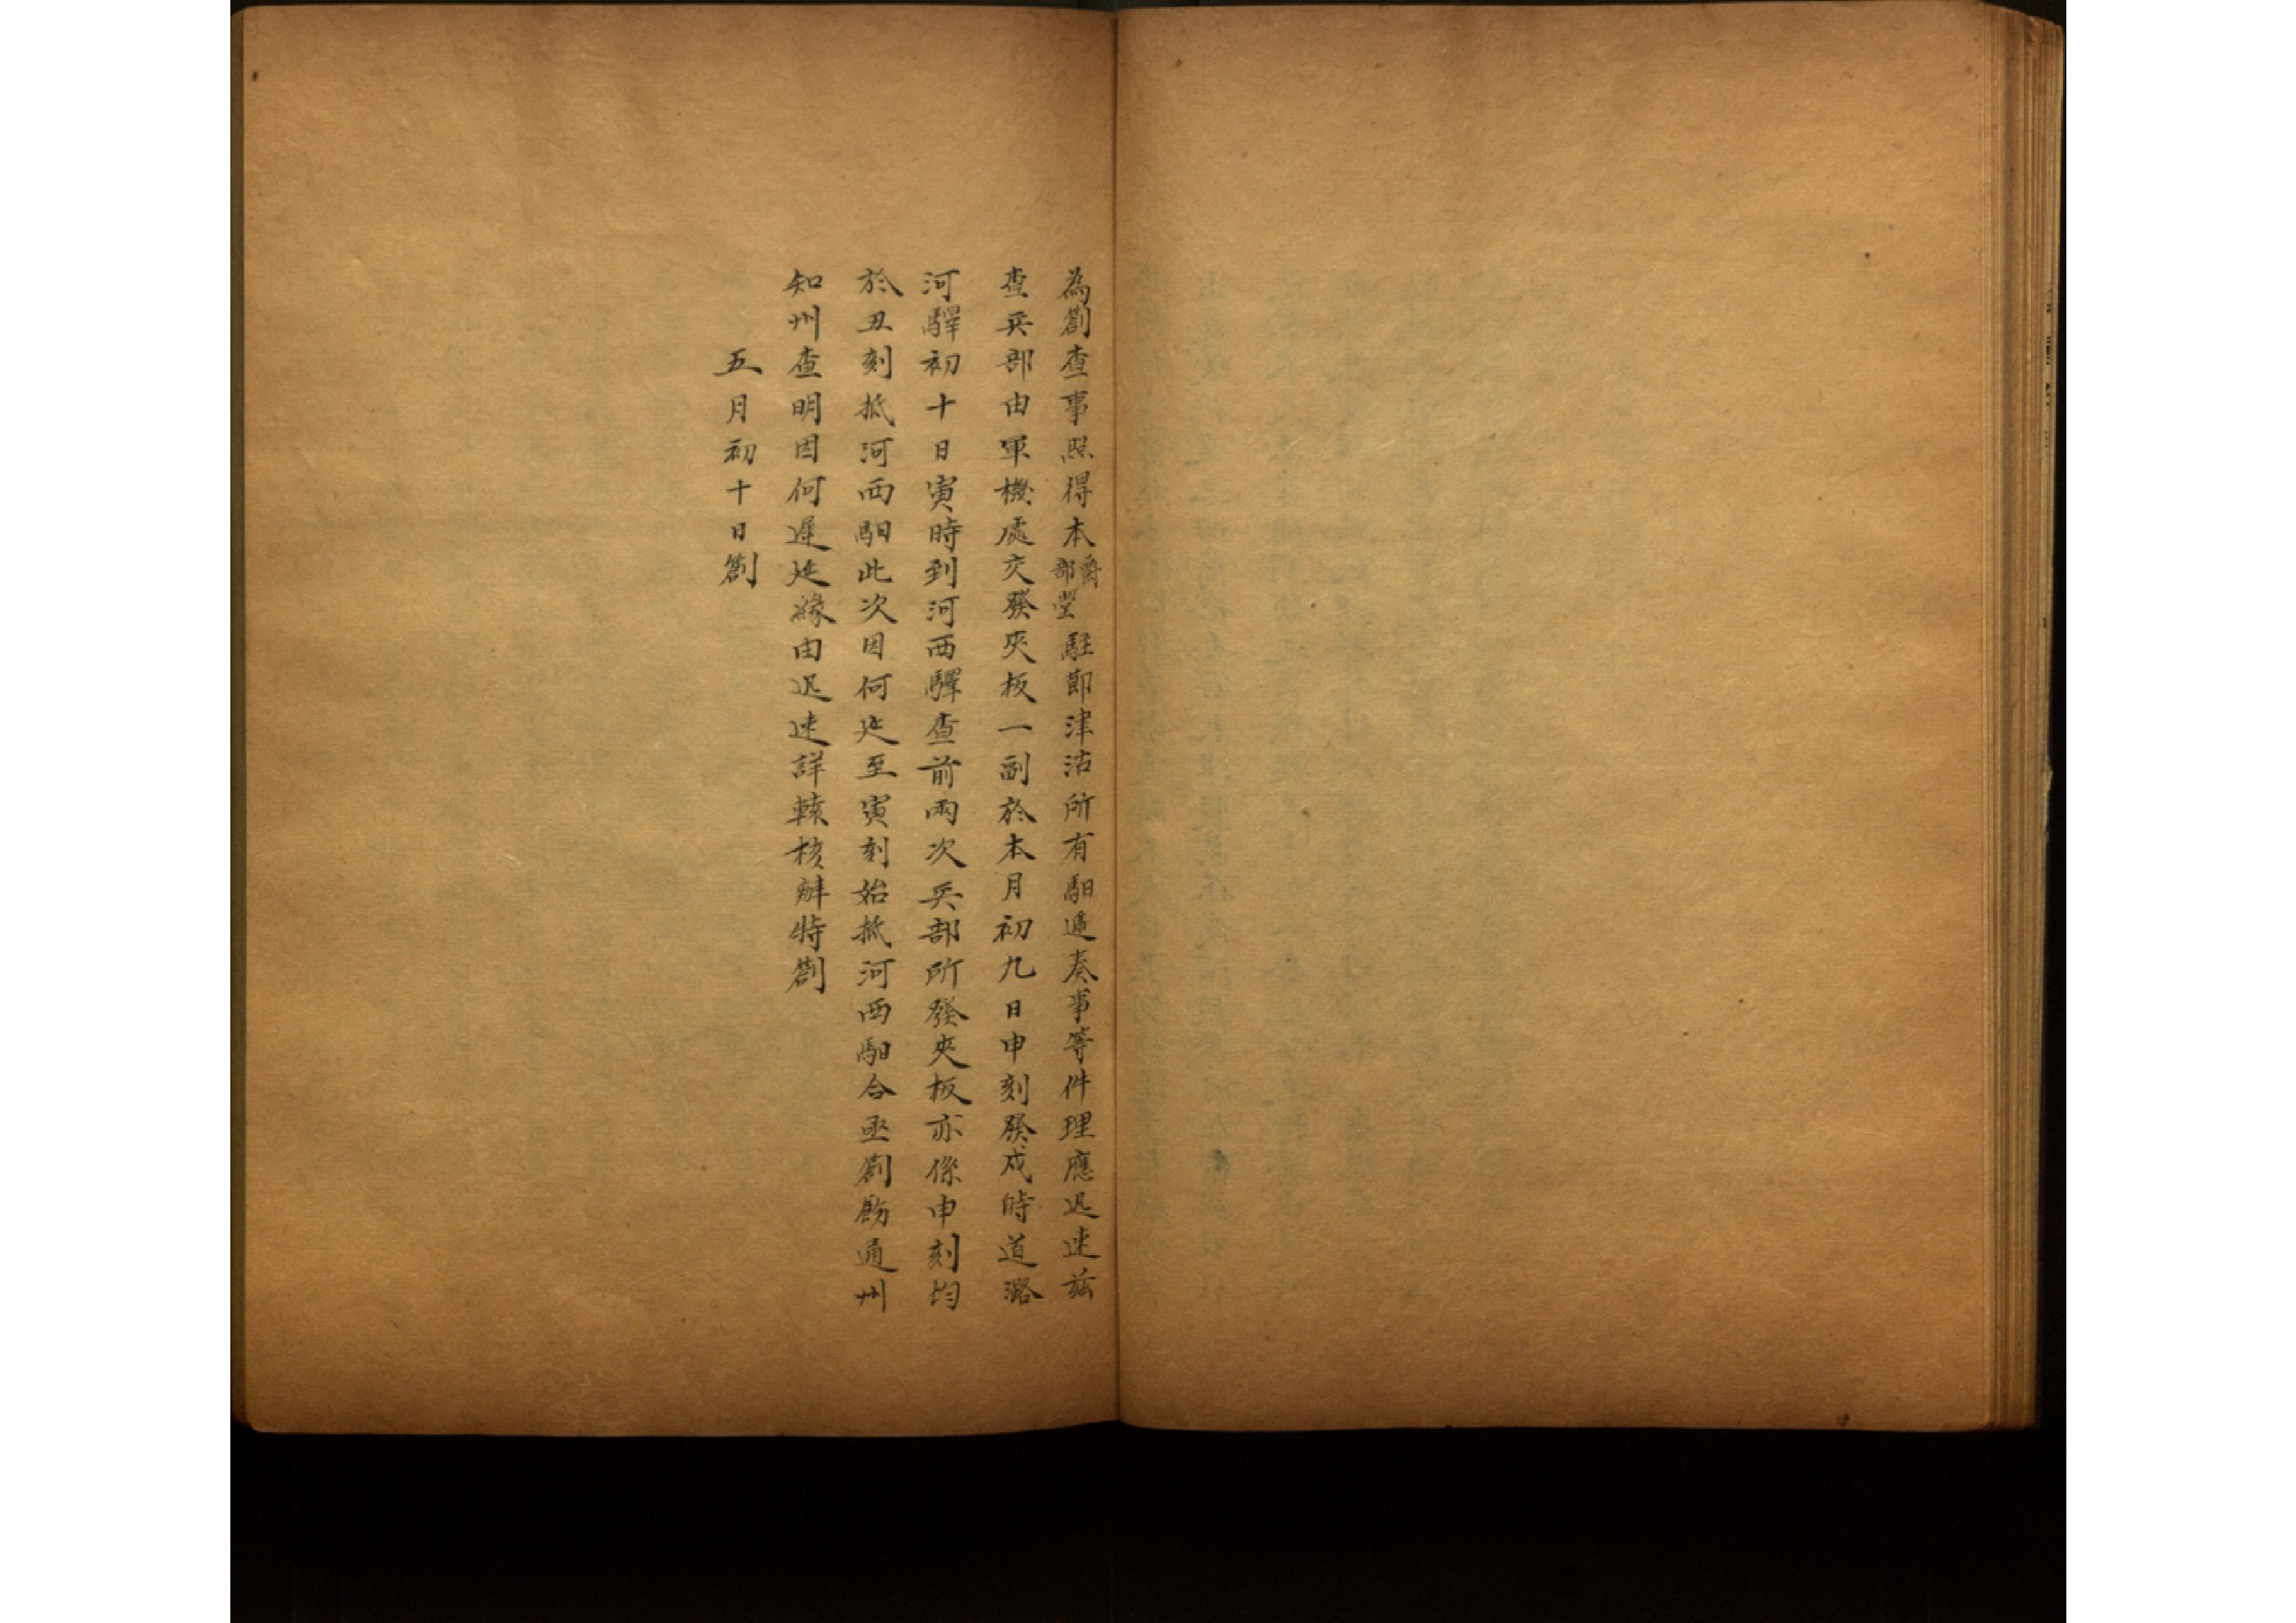 為劄查事照得本爵部堂駐節津沽所有馹遞奏事等件理應迅速茲
查兵部由軍機處交發夾板一副於本月初九日申刻發戍時道潞
河驛初十日寅時到河西驛查前兩次兵部所發夾板亦係申刻均
於丑刻抵河西馹此次因何迟至寅刻始抵河西馹合亟劄飭通州
知州查明因何遲延緣由迅速詳轅核辦特劄
五月初十日劄